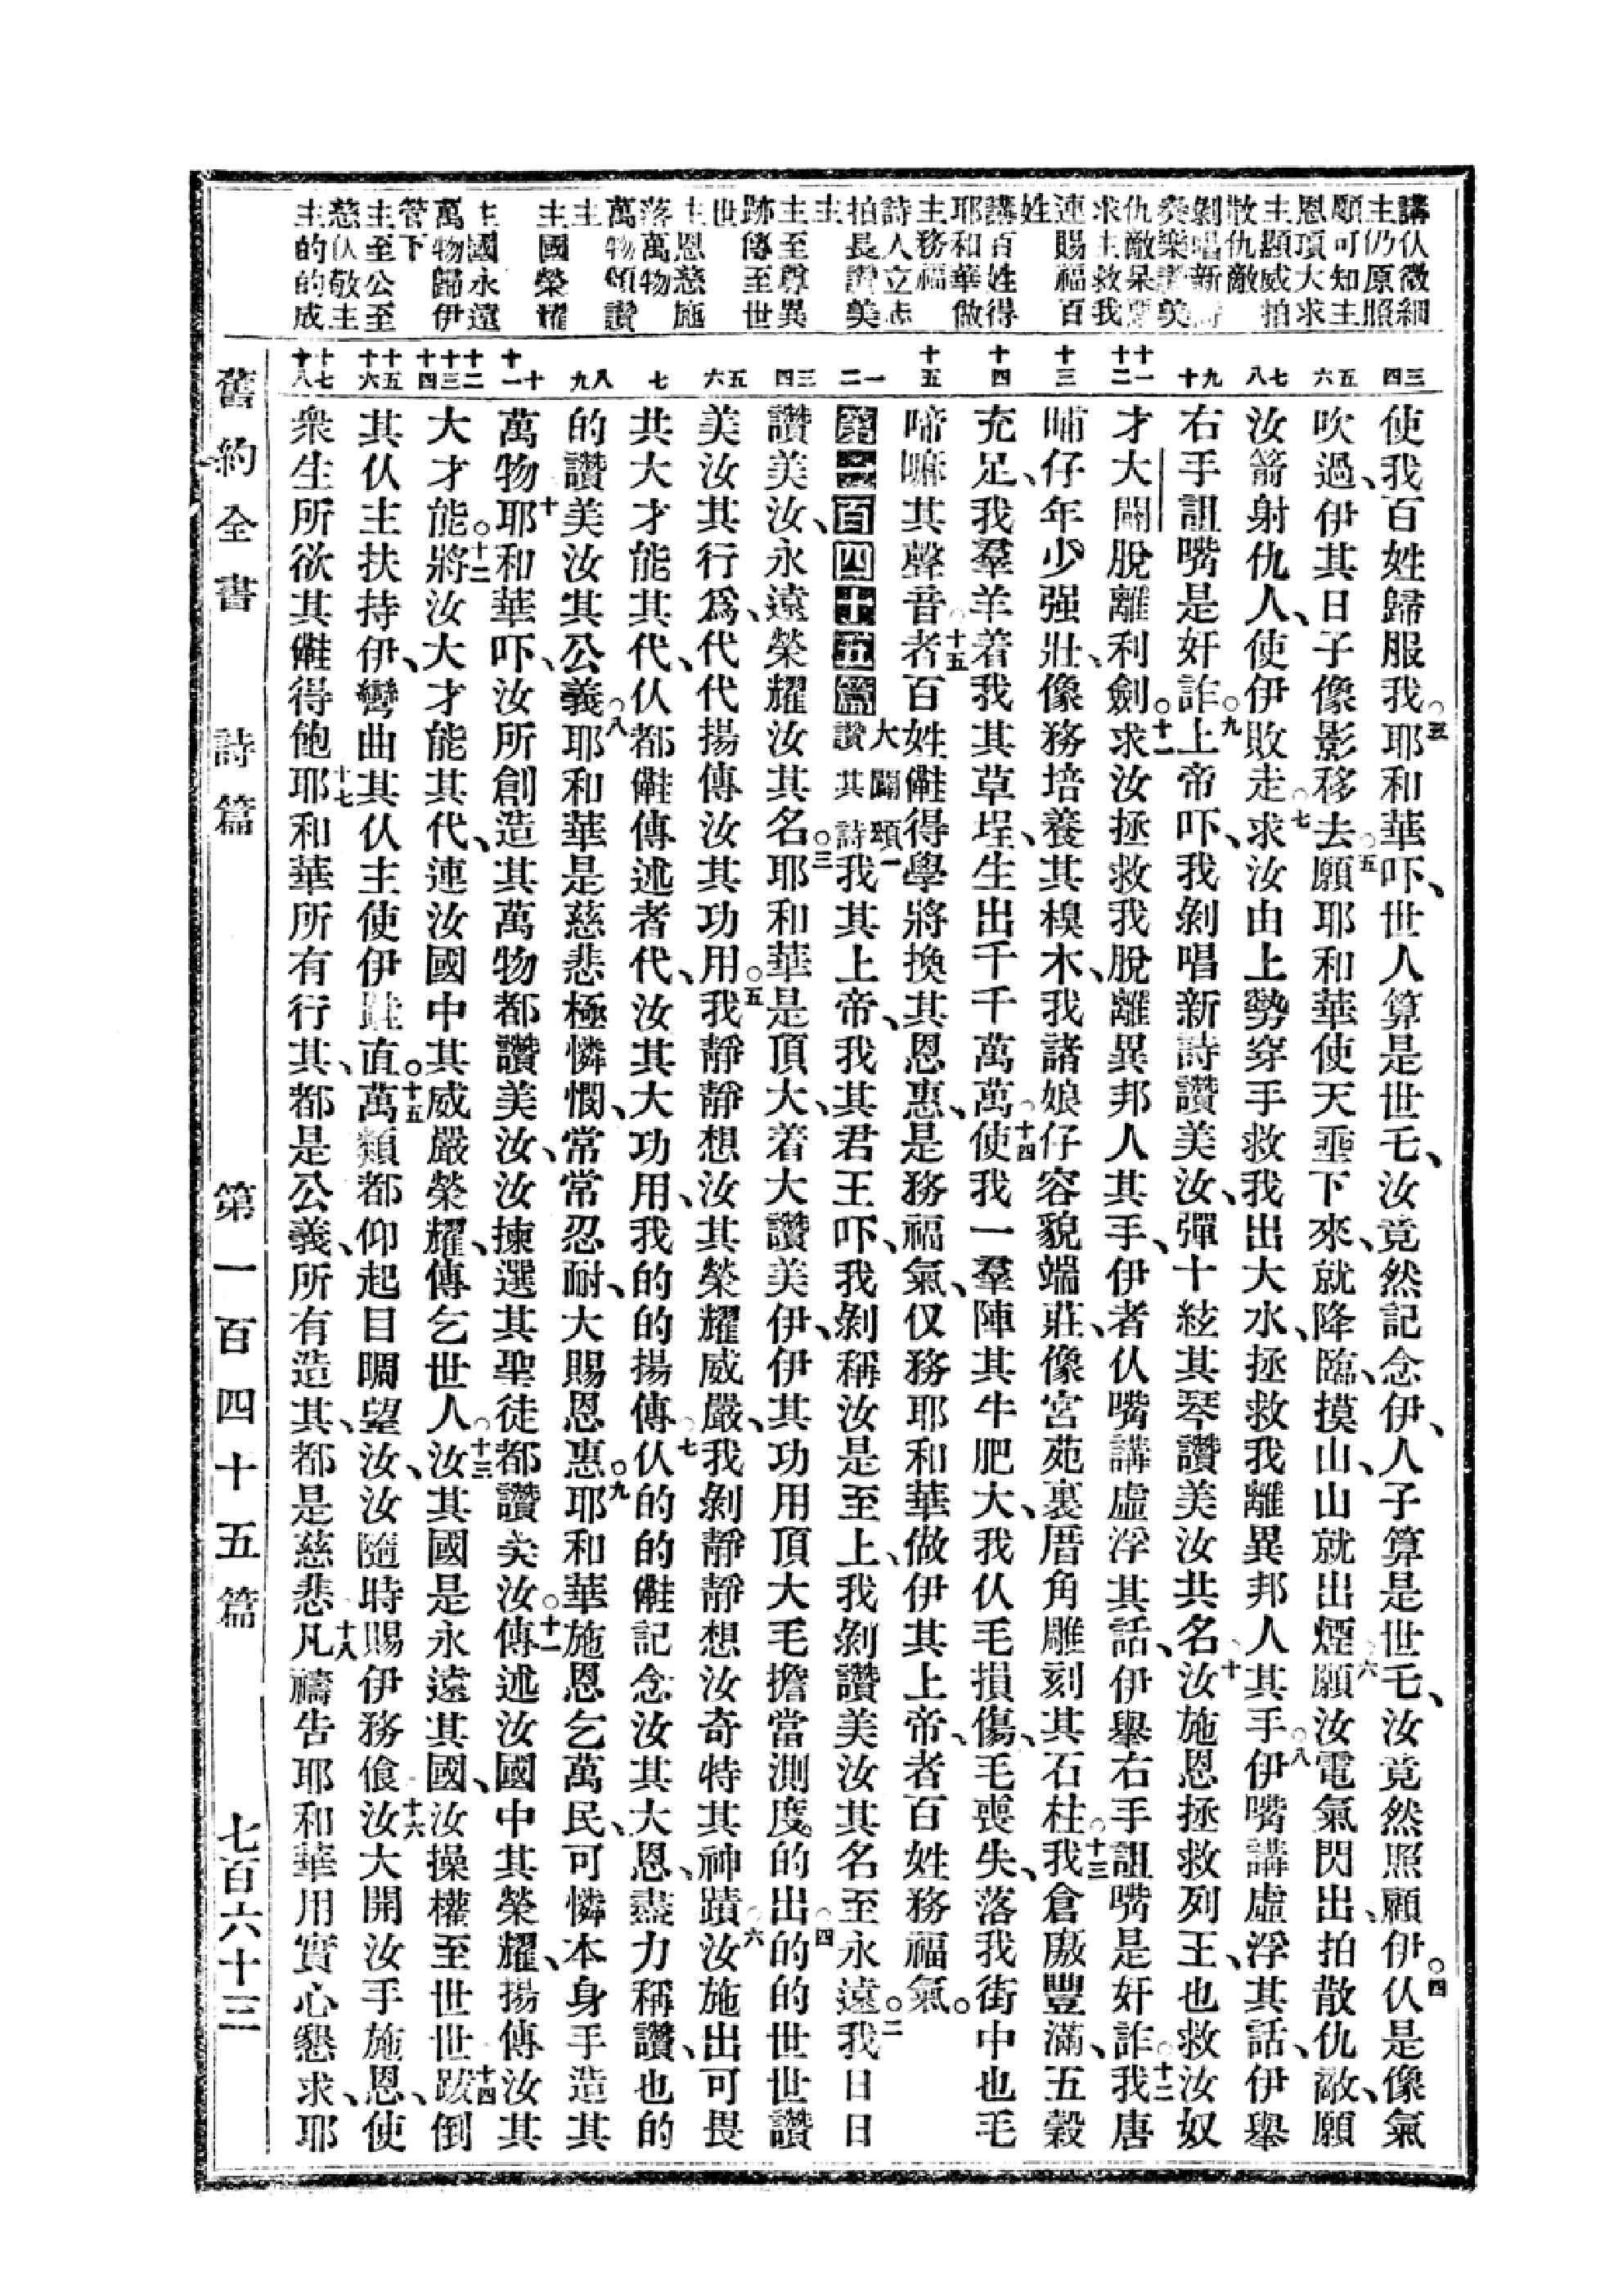 講仈微細
主仍原照
願可知主
恩項大求
主顯威拍
散仇敵
剝唱新詩
奏樂讚美
仇敵呆
求主救我
連賜福百
姓
講百姓得
耶和華做
主務福
詩人立志
拍長讚美
主
主至尊異
跡傳至世
世
主恩慈施
落萬物
萬物頌讚
主
主國榮耀
主國永遠
萬物歸伊
管下
主至公至
慈仈敬主
主的的成
三四
五六
七八
九十
十一十二
十三
十四
十五
一二
三四
五六
七
八九
十十一
十二十三十四
十五十六
十七十八
使我百姓歸服我。三耶和華吓、世人算是世乇、汝竟然記念伊、人子算是世乇、汝竟然照顧伊。四仈是像氣
吹過、伊其日子像影移去。五願耶和華使天垂下來、就降臨、摸山、山就出煙。六願汝電氣閃出、拍散仇敵、願
汝箭射仇人、使伊敗走。七求汝由上勢穿手救我出大水、拯救我離異邦人其手。八伊嘴講虛浮其話、伊舉
右手詛嘴是奸詐。九上帝吓、我剝唱新詩讚美汝、彈十絃其琴讚美汝共名。十汝施恩拯救列王、也救汝奴
才大闢脫離利劍。十一求汝拯救我脫離異邦人其手、伊者仈嘴講虛浮其話、伊舉右手詛嘴是奸詐。十二我唐
晡仔年少强壯、像務培養其樹木、我諸娘仔容貌端莊、像宮苑裏厝角雕刻其石柱。十三我倉廒豐滿、五穀
充足、我羣羊着我其草埕、生出千千萬萬。十四使我一羣陣其牛肥大、我仈毛損傷、毛喪失、落我街中也毛
啼嘛其聲音。十五者百姓㑚得學將換其恩惠、是務福氣、仅務耶和華做伊其上帝、者百姓務福氣。
第一百四十五篇大闢頌讚其詩一我其上帝、我其君王吓、我剝稱汝是至上、我剝讚美汝其名至永遠。二我日日
讚美汝、永遠榮耀汝其名。三耶和華是頂大、着大讚美伊、伊其功用頂大毛擔當測度。四的出的的世世讚
美汝其行爲、代代揚傳汝其功用。五我靜靜想汝其榮耀威嚴、我剝靜靜想汝奇特其神蹟。六汝施出可畏
共大才能其代、仈都㑚傳述者代、汝其大功用、我的的揚傳。七仈的的㑚記念汝其大恩、盡力稱讚、也的
的讚美汝其公義。八耶和華是慈悲極憐憫、常常忍耐、大賜恩惠。九耶和華施恩乞萬民、可憐本身手造其
萬物。十耶和華吓、汝所創造其萬物都讚美汝、汝揀選其聖徒都讚美汝。十一傳述汝國中其榮耀、揚傳汝其
大才能。十二將汝大才能其代、連汝國中其威嚴榮耀、傳乞世人。十三汝其國是永遠其國、汝操權至世世。十四跋倒
其仈主扶持伊、彎曲其仈主使伊跬直。十五萬類都仰起目睭望汝、汝隨時賜伊務飧。十六汝大開汝手施恩、使
衆生所欲其㑚得飽。十七耶和華所有行其、都是公義、所有造其、都是慈悲。十八凡禱告耶和華用實心懇求、耶
舊約全書　詩篇　第一百四十五篇　七百六十三